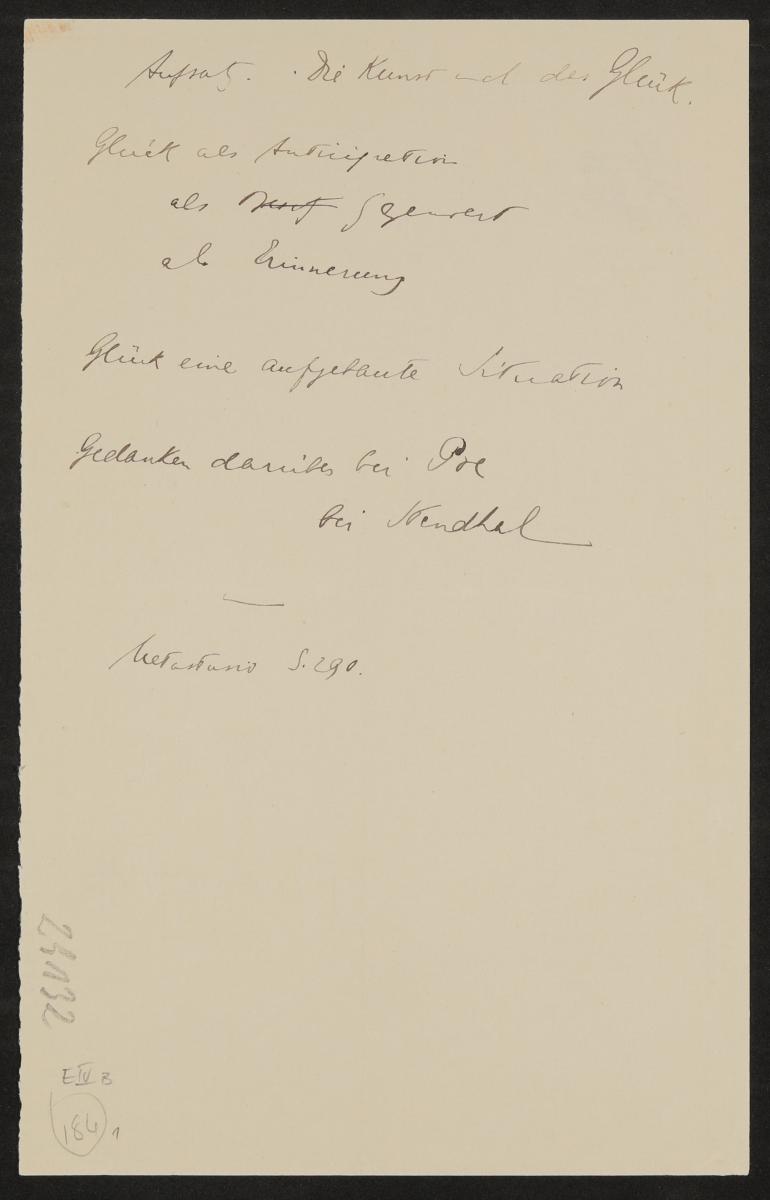 Aufsatz. Die Kunst und das Glück.
Glück als Anticipation
als Gegenwart
als Erinnerung
Glück eine aufgebaute Situation
Gedanken darüber bei Poe
bei Stendhal
Metastasio S. 290.
24132
E IV B
184 1